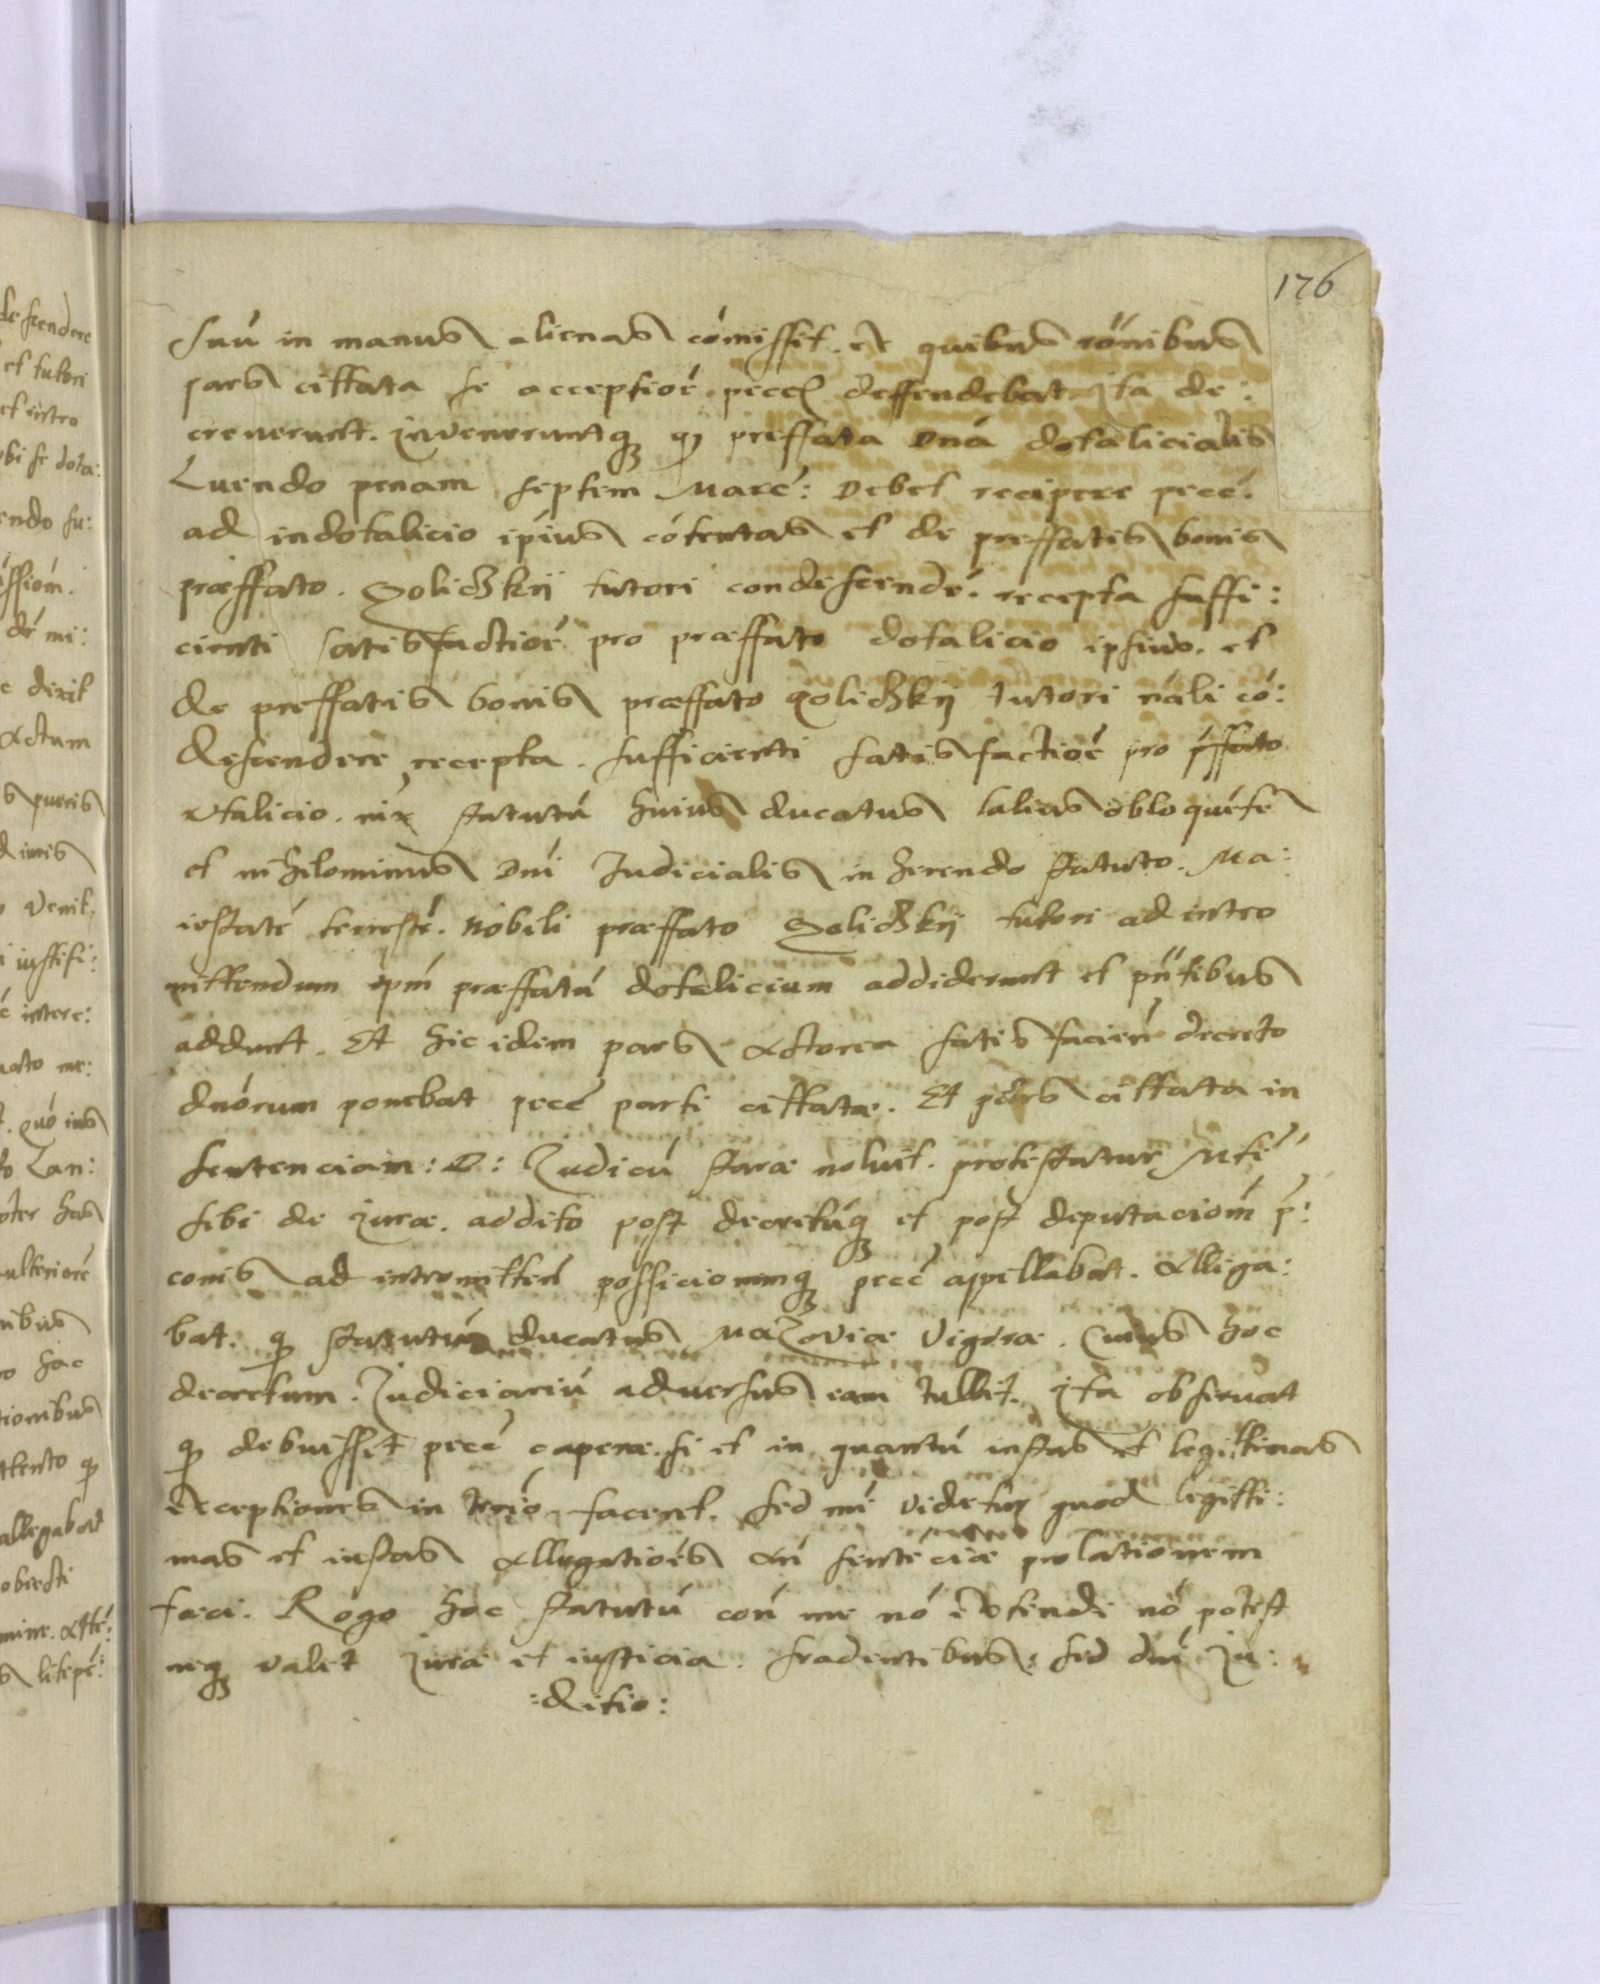 176
Suú in manus alienas cómissit. et quibus rónibus
pars cittata se acceptioé pecc deffendebat Ita de:
creverunt. Invenieruntq q preffata Dná dotalicialis
Luendo penam septem Marc: Debet recipere pecc:
ad indotalicio ipius cótentas et de preffatis bonis
præffato. Golidzkij tutori condescende. recepta suffi:
cienti satisfactioé pro præffato dotalicio ipsius. et
de preffatis bonis præffato Golidzkij tutori náli có:
descendere recepta. sufficienti satisfactioé pro pffato
talicio. statutú huius ducatus
et nihilominus Dni Judicialis in herendo statuto. Ma:
iestaté terresté. Nobili præffato Golidzkij tutori ad intro
mittendum ipm præffatú dotalicium addiderunt et pntibus
addunt. Et hic idem pars Actorea satis facien decreto
dnórum ponebat pecc parti cittatæ. Et pars cittata in
sentenciam: D: Judicú staræ noluit. protestatur
sibi de Juræ. addito post decretúq et post deputacióm p:
conis ad intromitten possicionemq pecc apellabat. Alliga:
bat. q statutú ducatus Mazoviæ Vigóræ. Cuius hoc
decretum. Judiciariú adversus eam tullit. Ita observat
q debuisset pecc caperæ. si et in quantú iustas et legittimas
exceptiones in terio facerit. sed mi videtur quod legitti:
mas et iustas Allegatióes An senteciæ prolationem
feci. Rogo hoc statutú con me nó extendi nó potest
neq valet Juræ et iusticia. sed dni Ju:
:ditio:
descendere
et tutori
et intro
obi se dota:
endo su:
dé mi:
dixit
Actum
pueris
Venit.
iustifi:
intere:
quó ius
Lan:
ulterioré
hac
tionibus
allegabat
obiecti